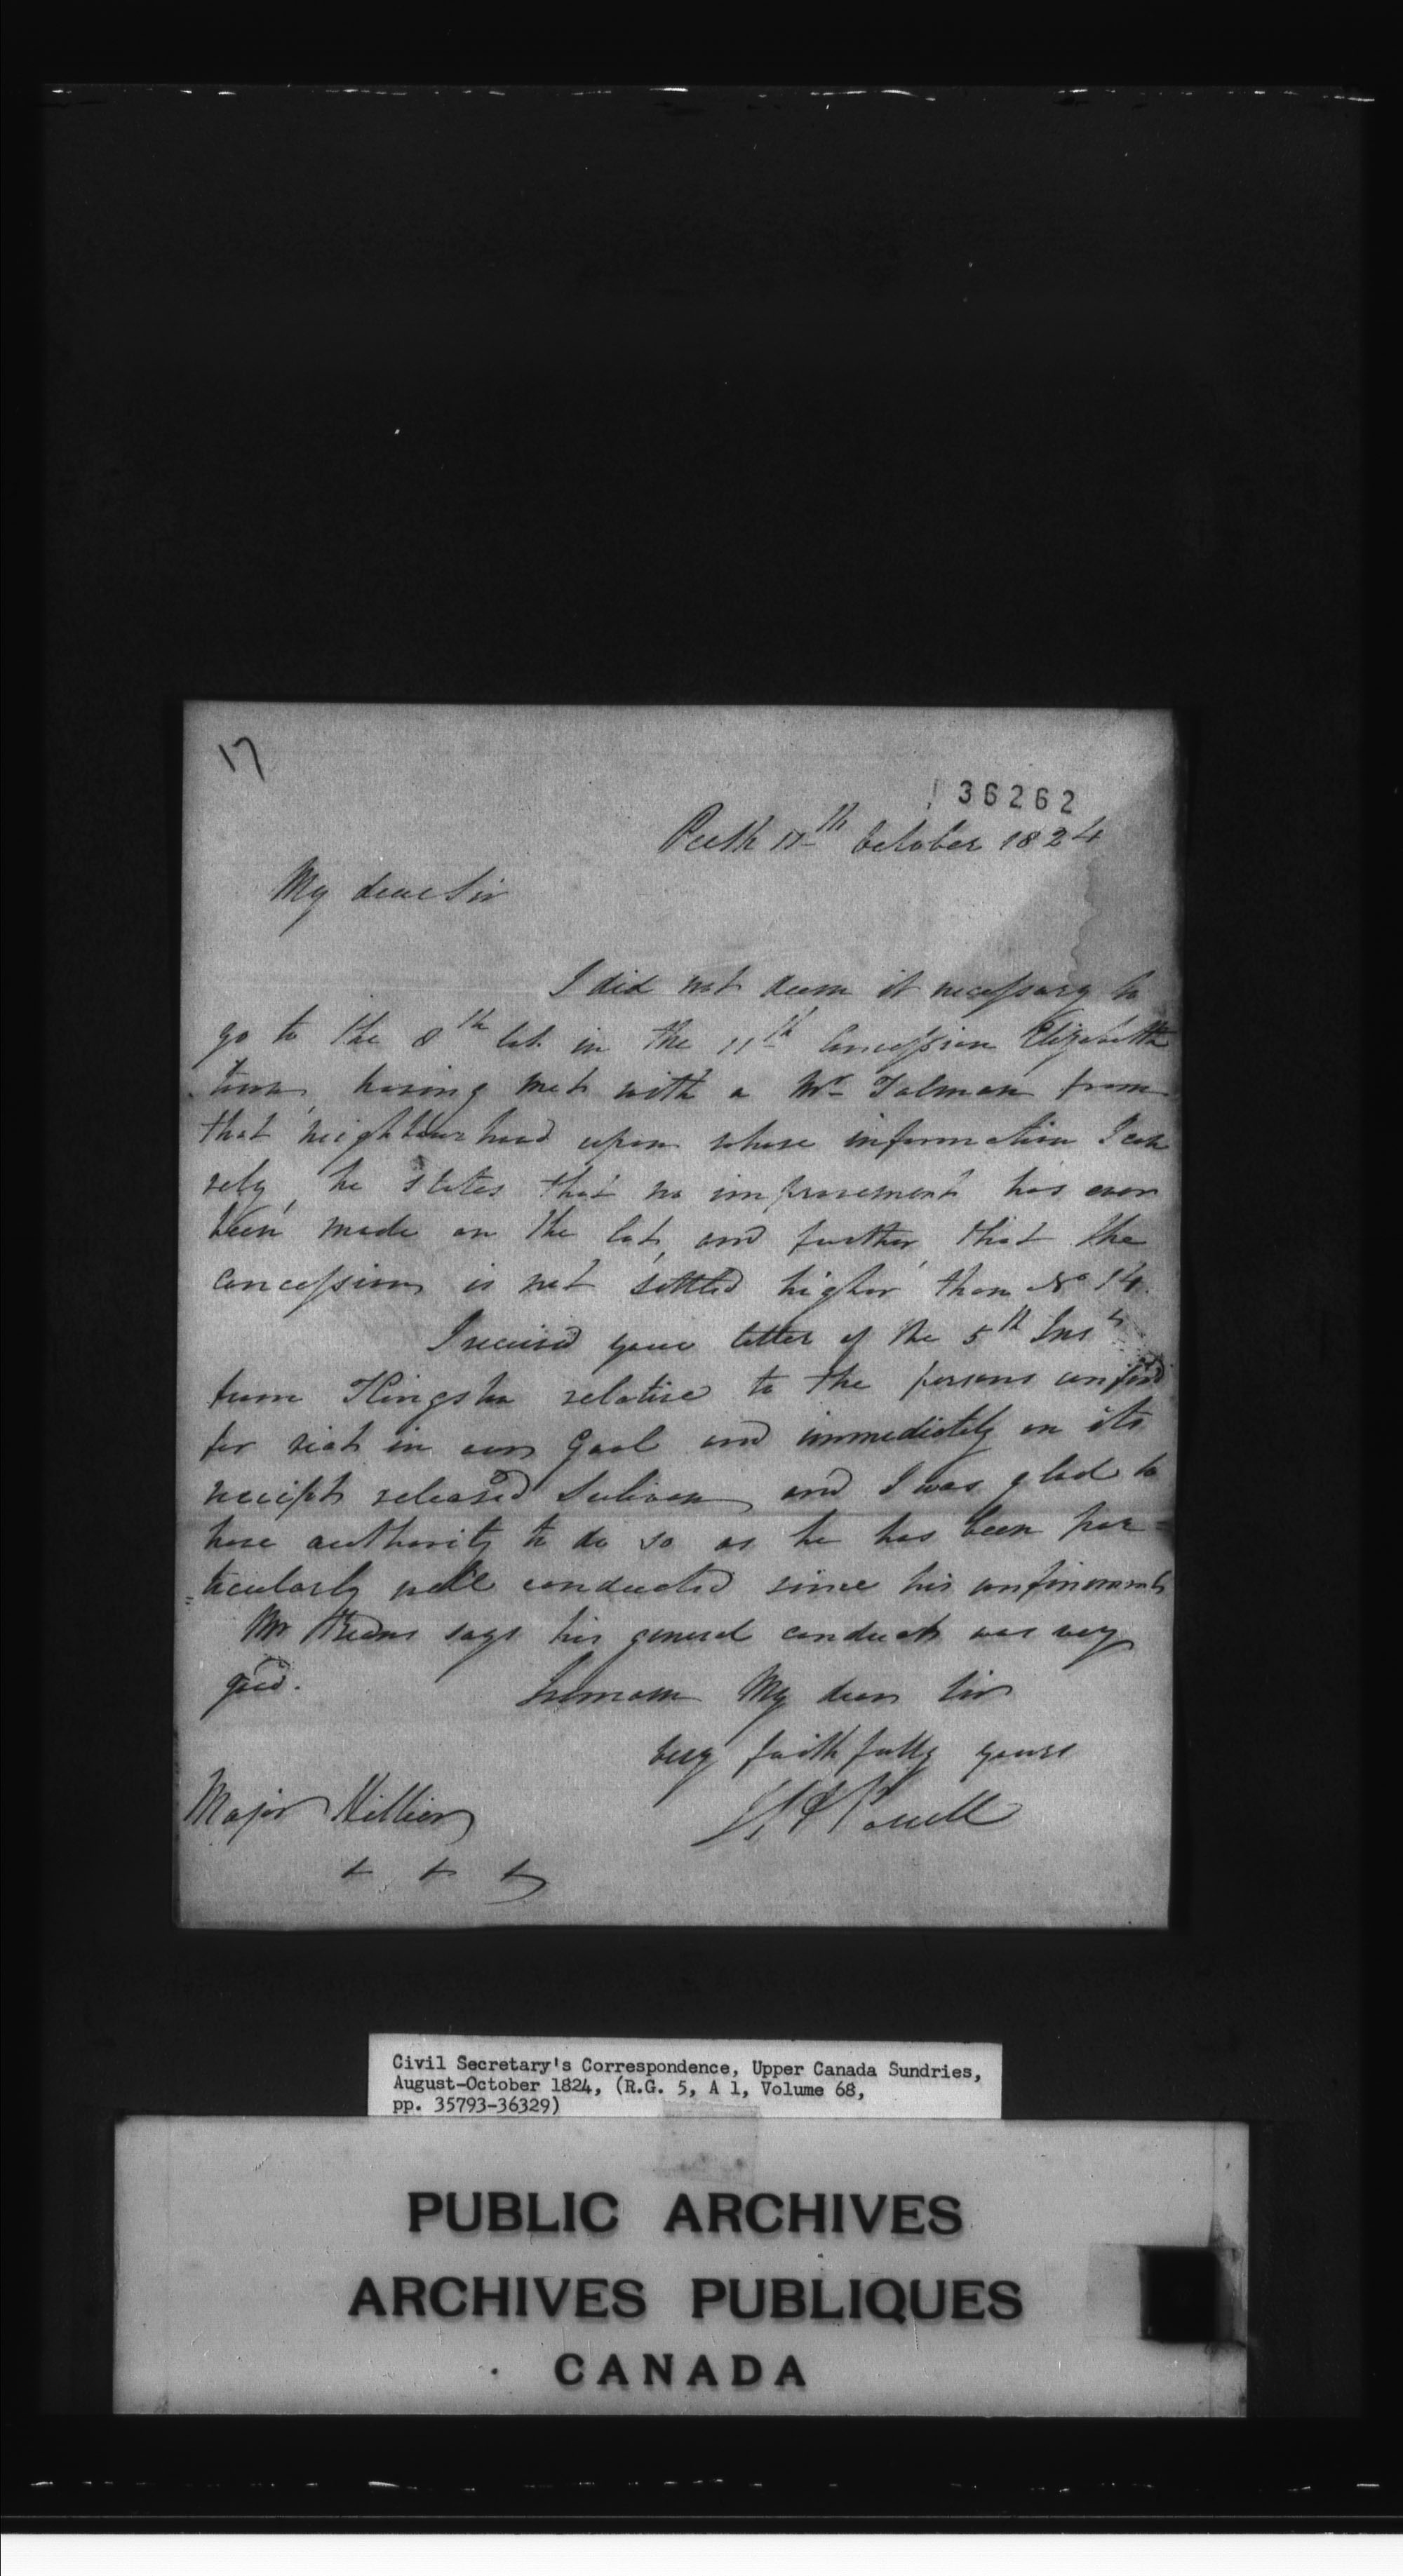 17
36262
Perth 17th October 1824
My dear Sir
I did not deem it necessary to
go to the 8th lot in the 11th Concession Elizabeth
town, having met with a Mr Tolman from
that neighbourhood upon whose information I can
rely, he states that no improvement has ever
been made on the lot, and further, that the
concession is not settled higher than No 14.
I received your letter of the 5th Inst
from Kingston relative to the persons confind
for riot in our Gaol and immediately on its
receipt released Sulivan and I was glad to
have authority to do so as he has been par=
=ticularly well conducted since his confinement
Mr says his general conduct was very
good. I remain My dear Sir
very faithfully yours
Major Hillier
Powell
+ + +
Civil Secretary's Correspondence, Upper Canada Sundries,
August-October 1824, (R.G. 5, A 1, Volume 68,
pp. 35793-36329)
PUBLIC ARCHIVES
ARCHIVES PUBLIQUES
CANADA